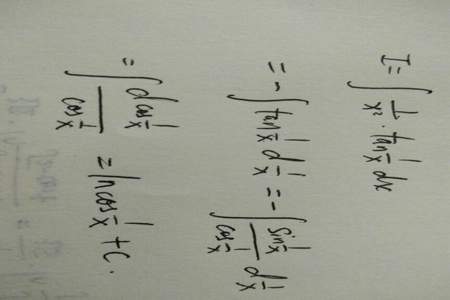 I = ∫ 1/x² · tan 1/x dx
= - ∫ tan 1/x d 1/x = - ∫ (sin 1/x)/(cos 1/x) d 1/x
= ∫ (d cos 1/x)/(cos 1/x) = ln cos 1/x + C.